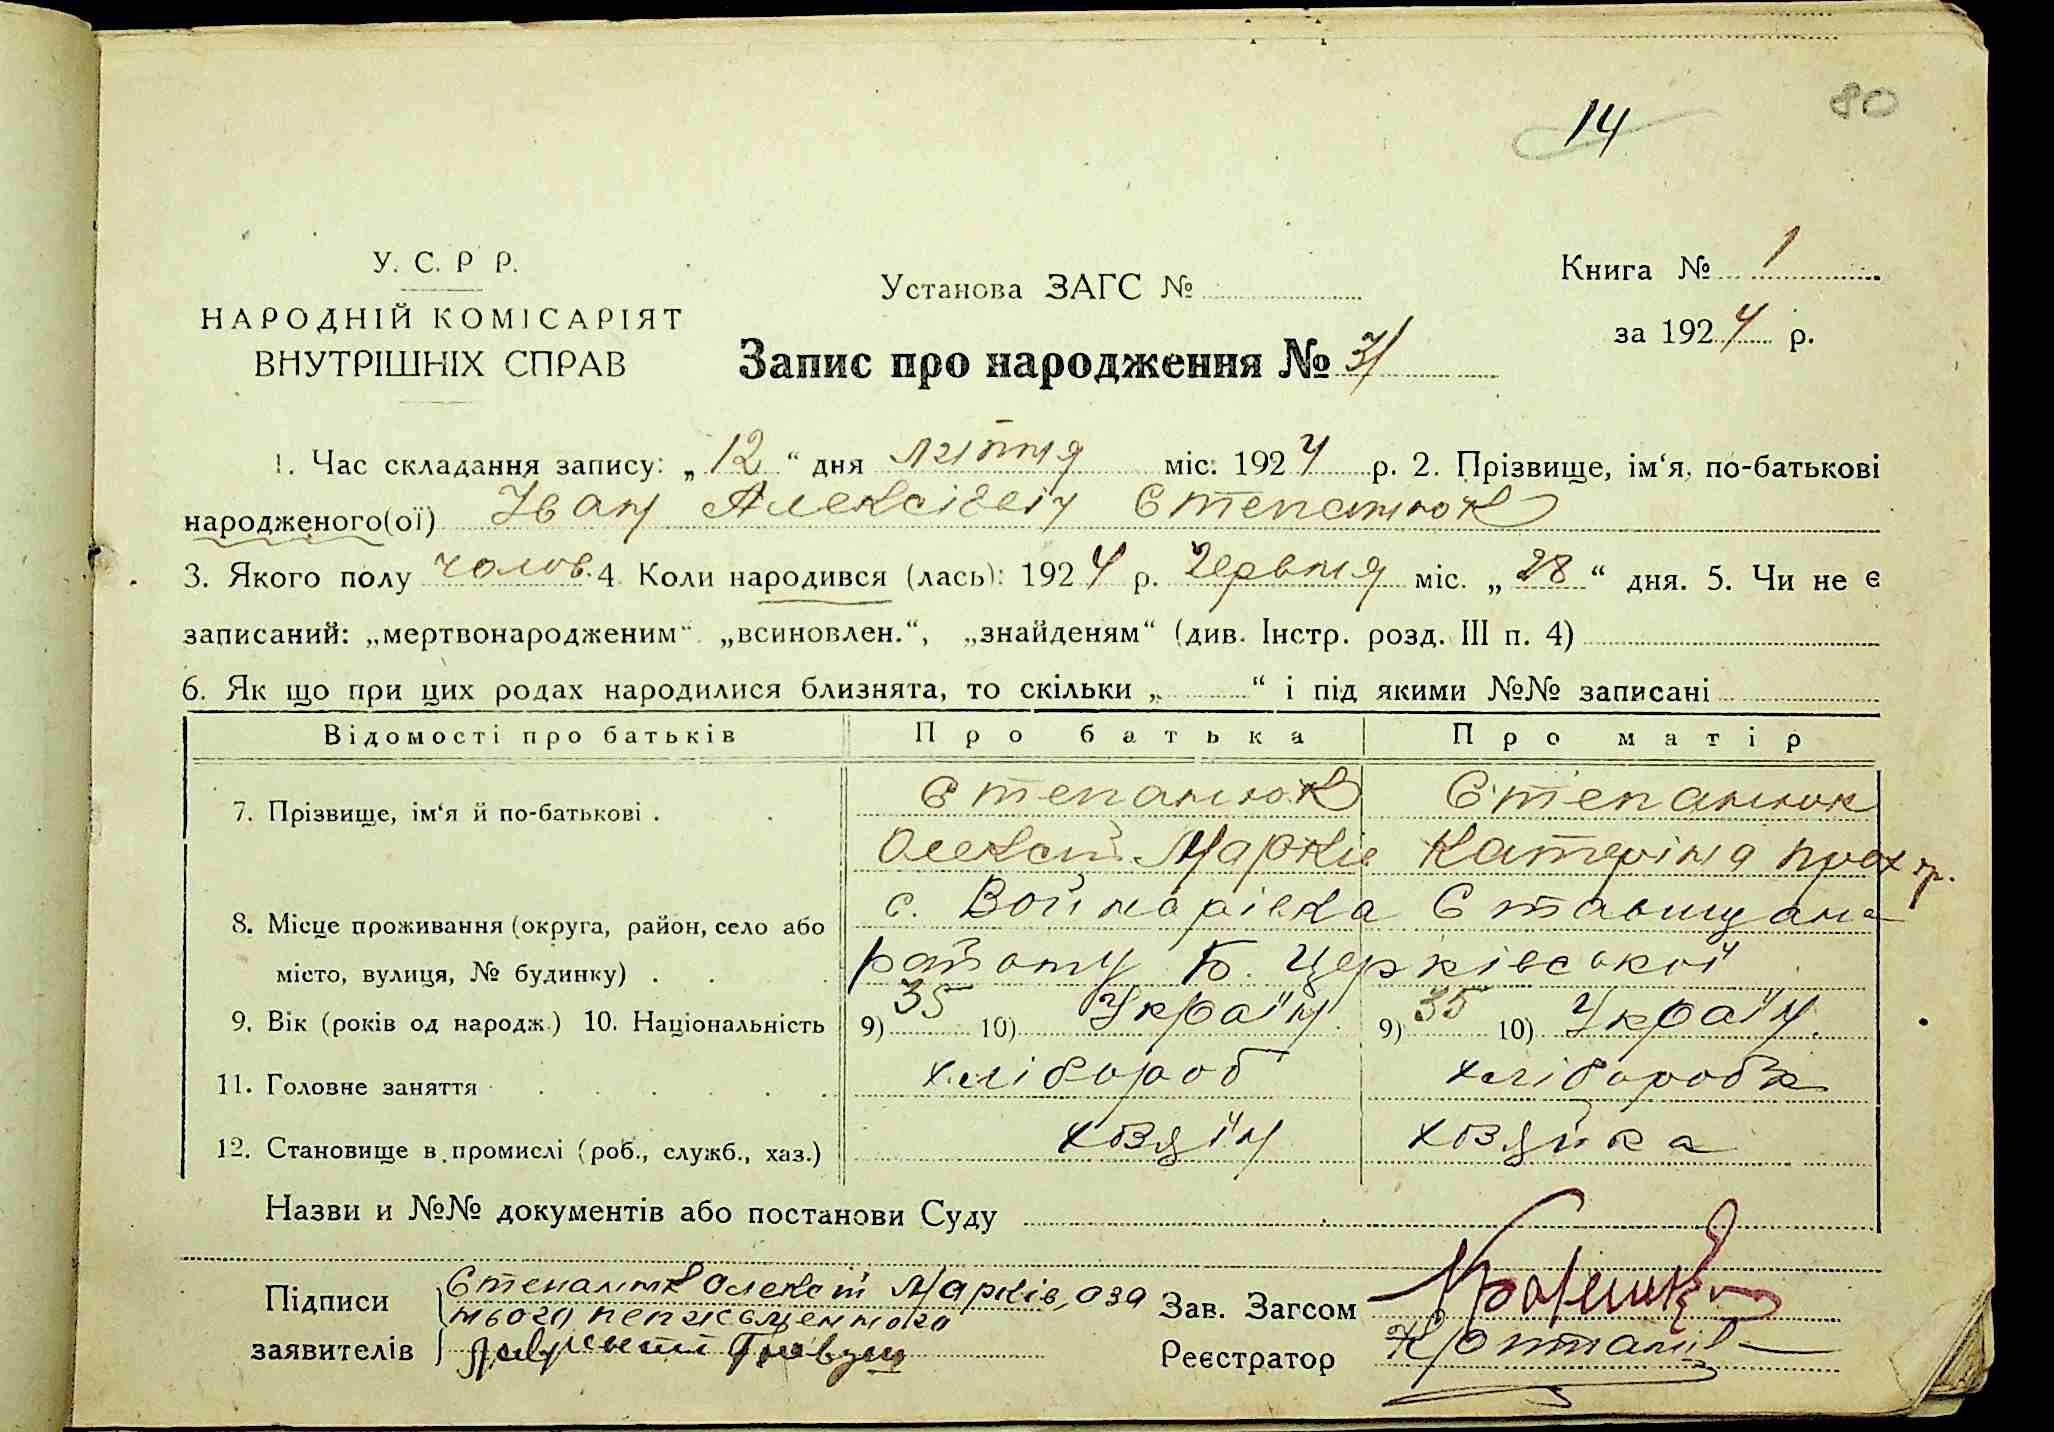 80
14
У. С. Р Р.
НАРОДНІЙ КОМІСАРІЯТ
ВНУТРІШНІХ СПРАВ
Установа ЗАГС №
Книга № 1
за 1924 р.
Запис про народження № 31
1. Час складання запису: „12“ дня липня міс. 1924 р. 2. Прізвище, ім‘я, по-батькові
народженого(ої) Іван Алексієвіч Степанюк
3. Якого полу чолов. 4. Коли народився (лась): 1924 р. Червня міс. „28“ дня. 5. Чи не є
записаний: „мертвонародженим“ „всиновлен.“, „знайденям“ (див. Інстр. розд. III п. 4)
6. Як що при цих родах народилися близнята, то скільки „ “ і під якими №№ записані
Відомості про батьків Про батька Про матір
7. Прізвище, ім‘я й по-батькові . Степанюк Степанюк
Олексій Марків Катеріна Прох
8. Місце проживання (округа, район, село або с. Войнарівка Ставищан
місто, вулиця, № будинку) . району Б. Церківської
9. Вік (років од народж.) 10. Національність 9) 35 10) Україн. 9) 35 10) Україн.
11. Головне заняття хлібороб хлібороб
12. Становище в промислі (роб., служб., хаз.) хозяїн хозяйка
Назви и №№ документів або постанови Суду
Підписи Степанюк Олексій Марків, аза
заявителів
Зав. Загсом
Реєстратор